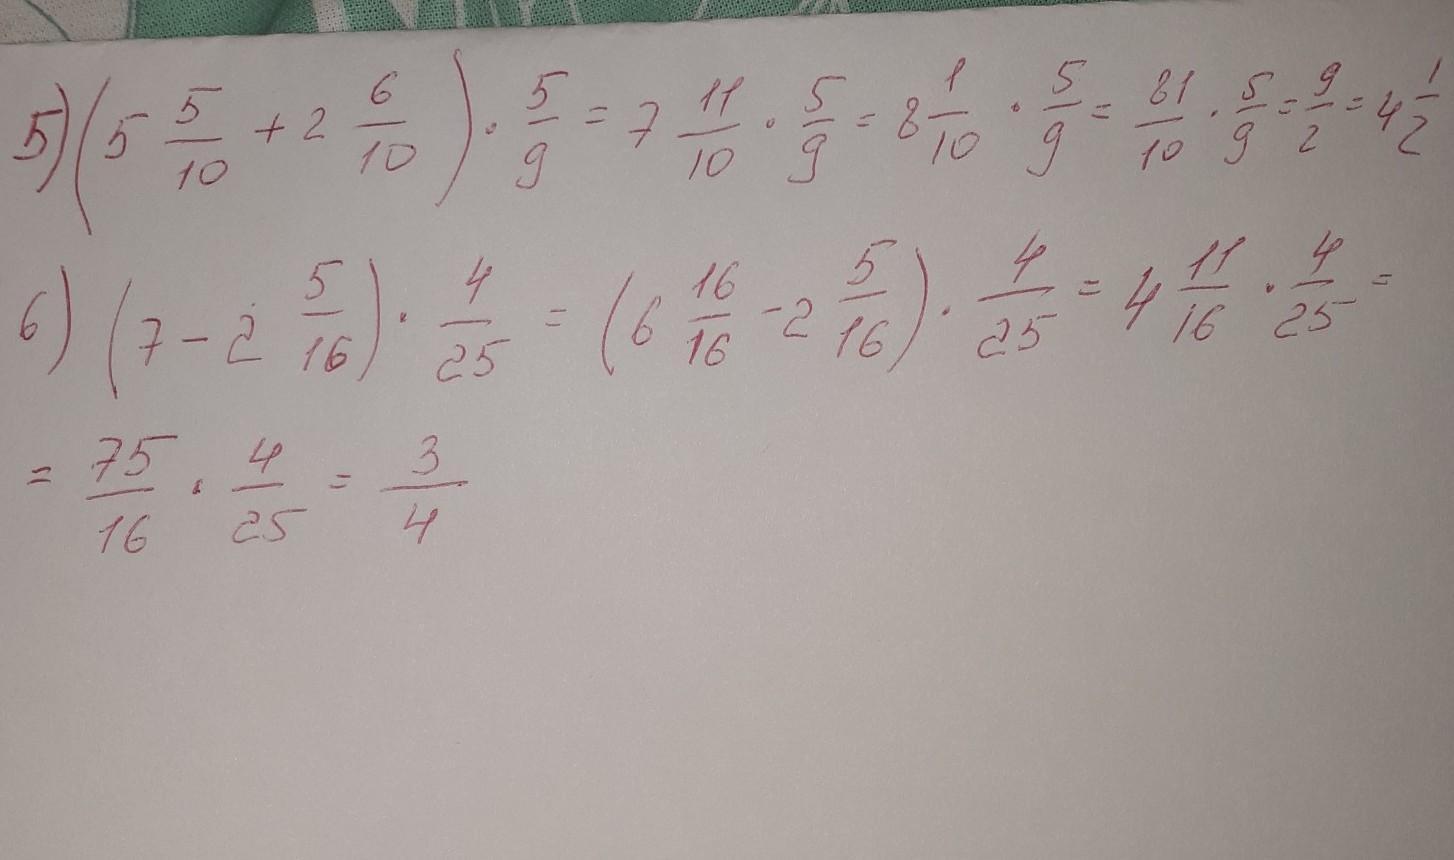 5) (5 5/10 + 2 6/10) · 5/9 = 7 11/10 · 5/9 = 8 1/10 · 5/9 = 81/10 · 5/9 = 9/2 = 4 1/2
6) (7 - 2 5/16) · 4/25 = (6 16/16 - 2 5/16) · 4/25 = 4 11/16 · 4/25 =
= 75/16 · 4/25 = 3/4